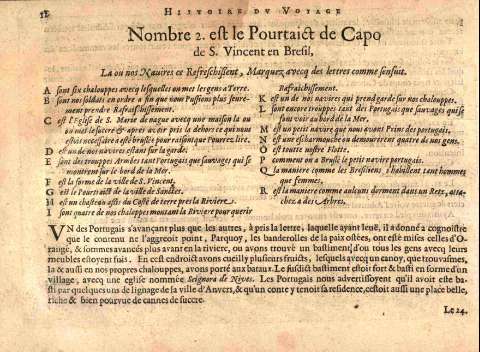 12 HISTOIRE DU VOYAGE
Nombre 2. est le Pourtaict de Capo
de S. Vincent en Bresil,
La ou nos Nauires ce Refreschissent, Marquez avecq des lettres comme sensuit.
A sont six chalouppes avecq lesquelles on met les gens a Terre.
B sont nos soldats en ordre a fin que nous Puissions plus seure-
ment prendre Rafraischissement.
C est l'Eglise de S. Marie de nague avecq une maison la ou
on met le sucre & apres avoir pris la dehors ce qui nous
estoit necessaire a este bruslee pour raison que Pourrez lire.
D est un de nos navires estant sur la garde.
E sont des trouppes Armees tant Portugais que sauvages qui se
monstrent sur le bord de la Mer.
F est la forme de la ville de S. Vincent.
G est le Pourtraict de la ville de Sanctes.
H est un chasteau assis du Costé de terre pres la Riviere.
I sont quatre de nos chaloppes montants la Riviere pour querir
Rafraischissement.
K est un de nos navires qui prend garde sur nos chaluppes.
L sont encore trouppes tant des Portugais que sauvages qui se
font voir au bord de la Mer.
M est un petit navire que nous avons Prins des portugais.
N est une escharmouche ou demourirent quatre de nos gens.
O est toute nostre Flotte.
P comment on a Bruslé le petit navire portugais.
Q la maniere comme les Bresiliens s'habillent tant hommes
que femmes.
R est la maniere comme aulcuns dorment dans un Rets, atta-
chez a des Arbres.
VN des Portugais s'avançant plus que les autres, à pris la lettre, laquelle ayant leuë, il a donné a cognoistre
que le content ne l'aggreoit point, Parquoy, les banderolles de la paix ostées, ont esté mises celles d'O-
range, & sommes avancés plus avant en la riviere, ou avons trouvé un bastiment, d'ou tous les gens avecq leurs
meubles estoyent fuis. En cest endroict avons cueilly plusieurs fruicts, lesquels avecq un canoy, que trouvasmes,
la & aussi en nos propres chalouppes, avons porté aux bataux. Le susdict bastiment estoit fort & basti en forme d'un
village, avecq une eglise nommée Seignora de Nives. Les Portugais nous advertissoyent qu'il avoit este ba-
sti par quelques uns de lignage de la ville d'Anvers, & qu'un conte y tenoit sa residence, cestoit aussi une place belle,
riche & bien pourvue de cannes de succre.
Le 24.